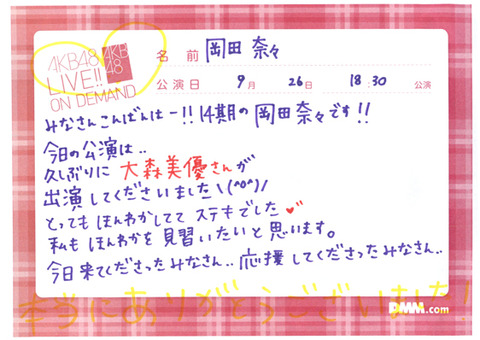 AKB48
LIVE!!
ON DEMAND
AKB
48
名前 岡田奈々
公演日 9月 26日 18:30 公演
みなさんこんばんはー!!14期の岡田奈々です!!
今日の公演は..
久しぶりに大森美優さんが
出演してくださいました\(^o^)/
とってもほんわかしてて ステキでした
私もほんわかを見習いたいと思います。
今日来てくださったみなさん..応援してくださったみなさん..
本当にありがとうございました!
DMM.com